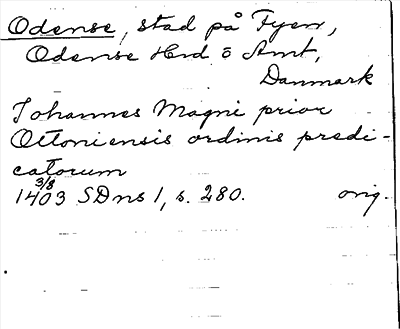 Odense, stad på Fyen,
Odense Hrd o Amt,
Danmark
Johannes Magni prior
Ottoniensis ordinis predi-
catorum
3/8
1403 SDns 1, s. 280. orig.